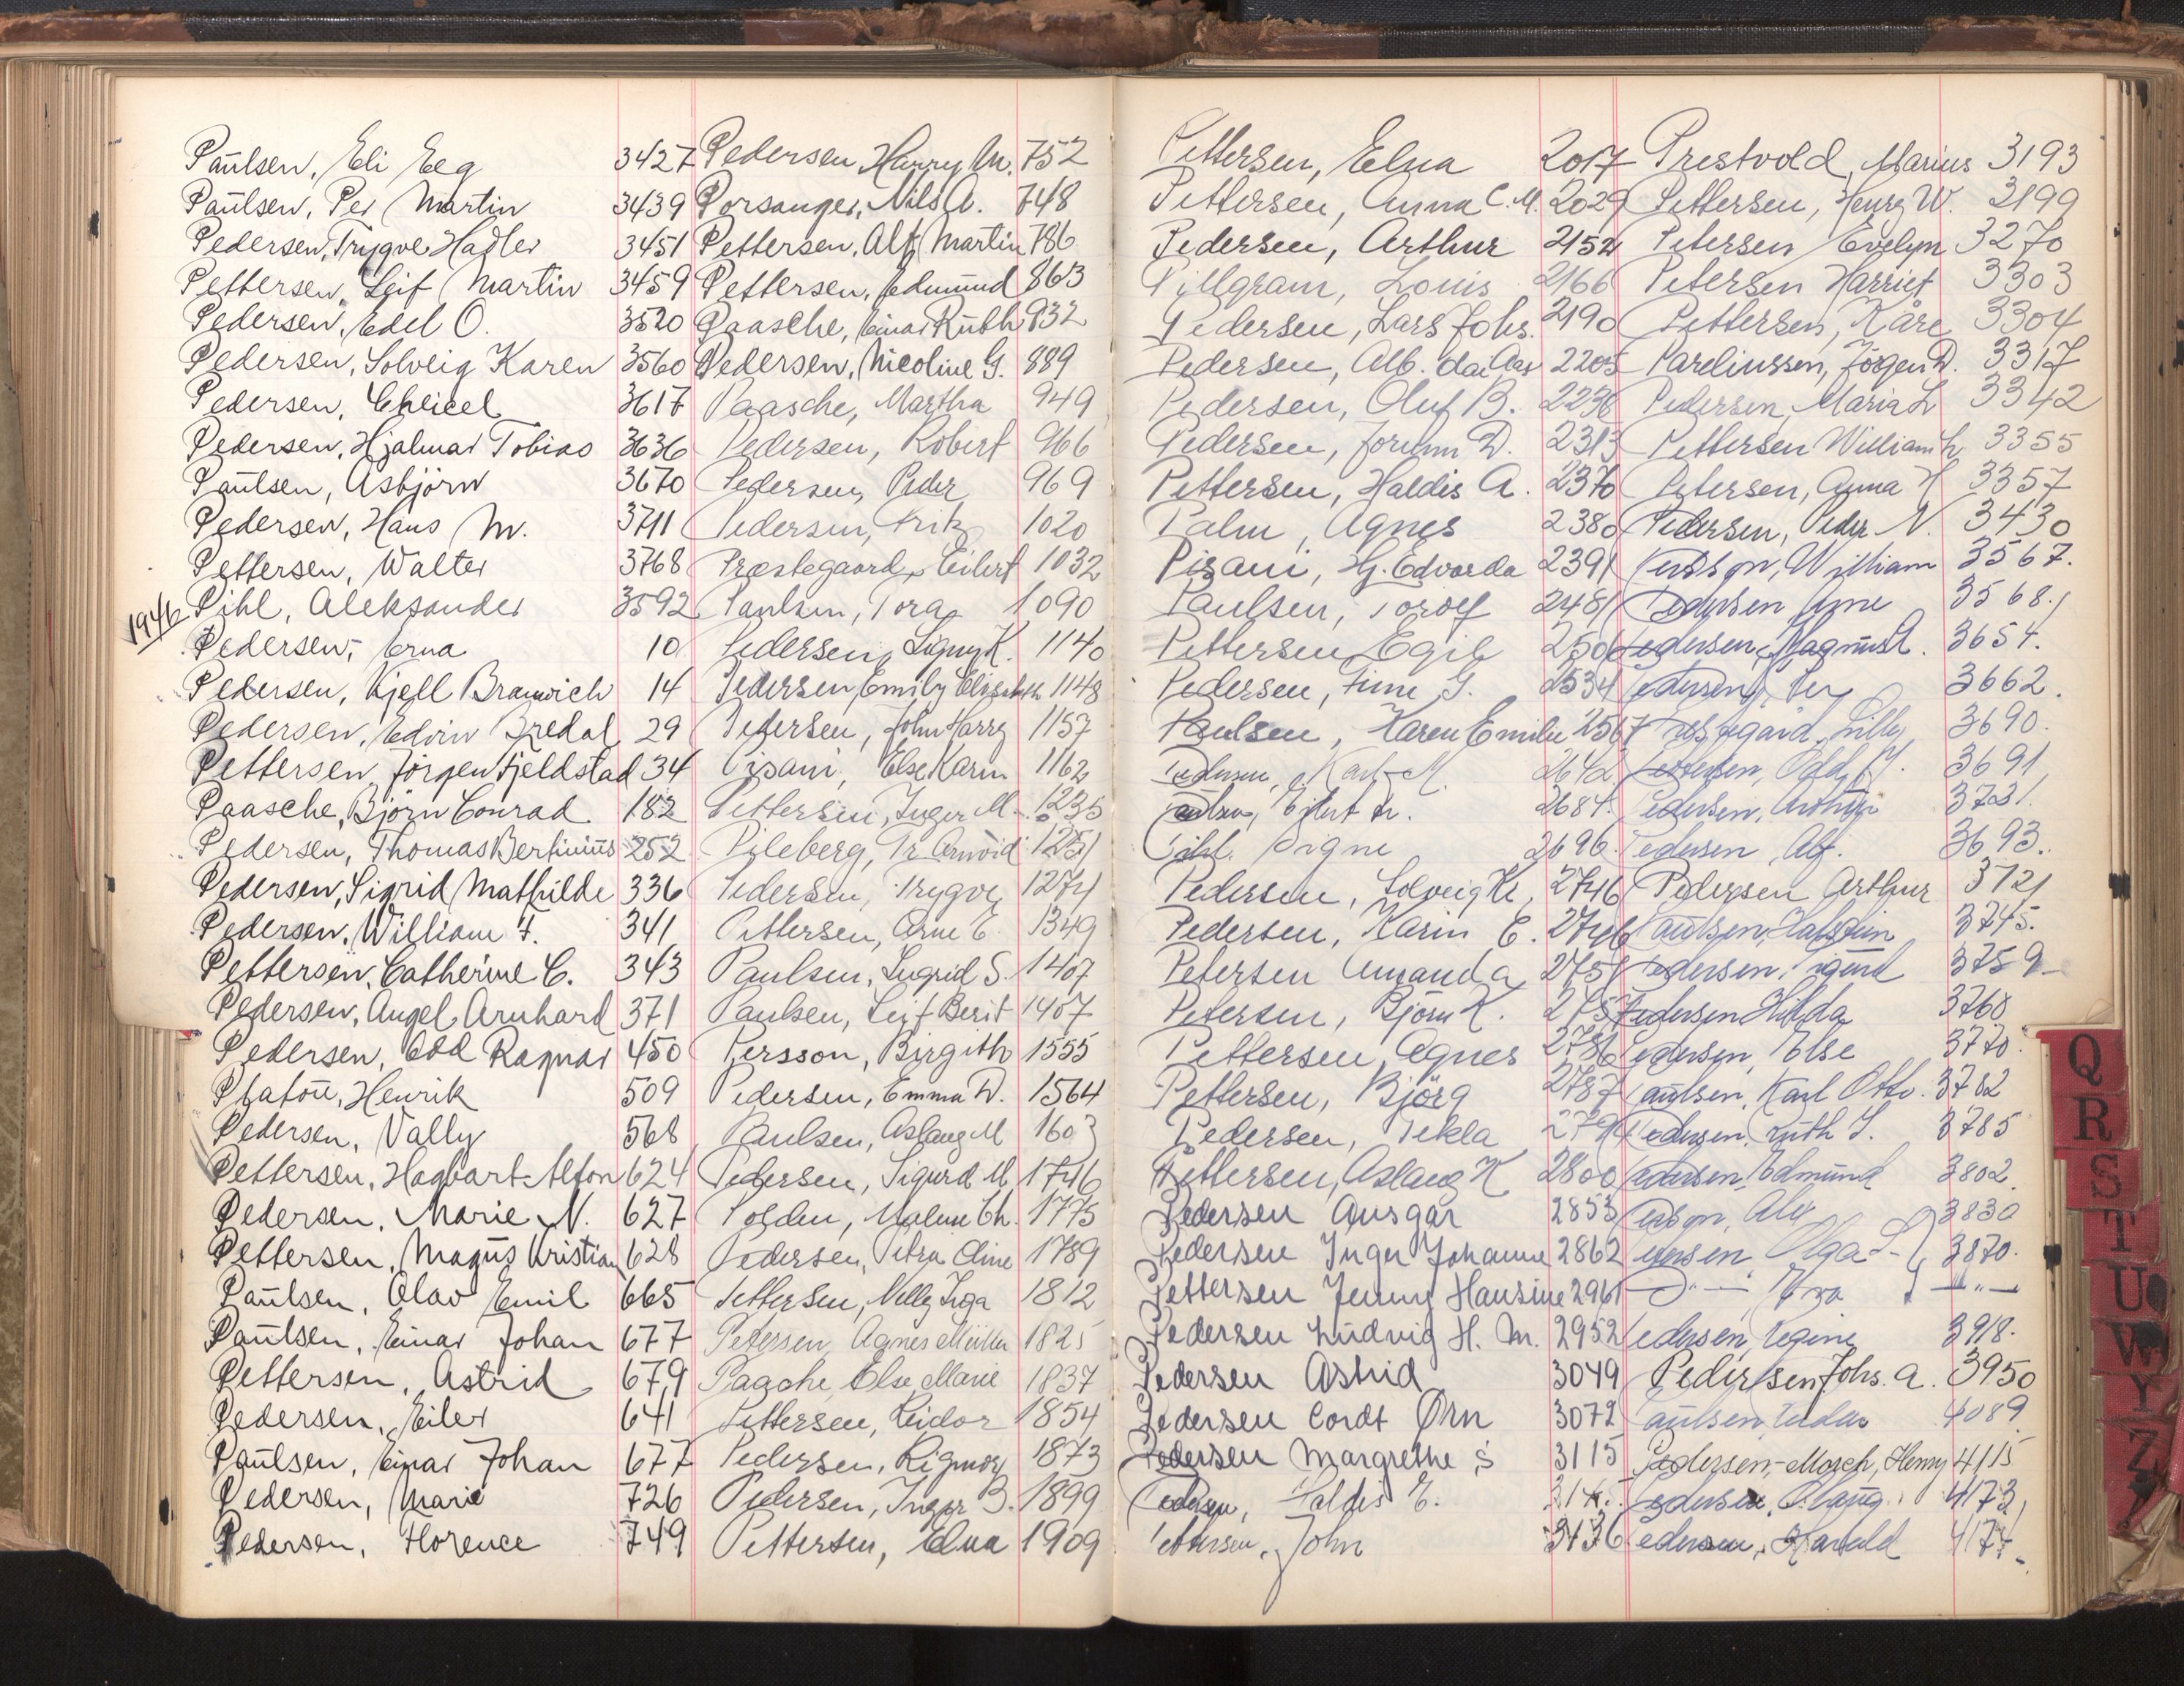 Paulsen, Eli Eeg 3427
Paulsen, Per Martin 3439
Pedersen, Trygve Hadler 3451
Pettersen, Leif Martin 3459
Pedersen, Edel O. 3520
Pedersen, Solveig Karen 3560
Pedersen, 3617
Pedersen, Hjalmar Tobias 3636
Paulsen, Asbjörn 3670
Pedersen, Hans M. 3711
Pettersen, Walter 3768
Pihl, Aleksander 3592
1946
Pedersen, Erna 10
Pedersen, Kjell 14
Pedersen, Edvin Bredal 29
Pettersen, Jörgen Fjeldstad 34
Paasche, Björn Conrad 182
Pedersen, Thomas Bertinius 252
Pedersen, Sigrid Mathilde 336
Pedersen, William F. 341
Pettersen, Catherine C. 343
Pedersen, Angel Arnhard 371
Pedersen, Odd Ragnar 450
Platou, Henrik 509
Pedersen, Vally 568
Pettersen, Hagbart Alfon 624
Pedersen, Marie N. 627
Pettersen, Magnus Kristian 628
Paulsen, Olav Emil 665
Paulsen, Einar Johan 677
Pettersen, Astrid 679
Pedersen, Eiler 641
Paulsen, Einar Johan 677
Pedersen, Marie 726
Pedersen, Florence 749
Pedersen Harry M. 752
Porsanger, Nils A. 748
Pettersen, Alf Martin 786
Pettersen, Edmund 863
Paasche, Einar Ruth 832
Pedersen, Nicoline G. 889
Paasche, Martha 949
Pedersen, Robert 966
Pedersen, Peder 969
Pedersen, Fritz 1020
Præstegaard, Eilert 1032
Paulsen, Tora 1090
Pedersen, Signy K. 1140
Pedersen, Emily Elisabeth 1148
Petersen, John Harry 1157
Pisani, Else Karin 1162
Pettersen, Inger M. 1235
Pileberg, Tr. Arnvid 1251
Pedersen, Trygve 1274
Pettersen, Arne E. 1349
Paulsen, Ingrid S. 1407
Paulsen, Leif Berit 1407
Persson, Birgith 1555
Pedersen, Emma D. 1564
Paulsen, Aslaug M 1603
Pedersen, Sigurd M. 1746
Polden, Malene Ch. 1775
Pedersen, Petra Oline 1789
Pettersen, Nelly Inga 1812
Petersen, Agnes Müller 1825
Paasche, Else Marie 1837
Pettersen, Reidar 1854
Pedersen, Rigmor 1873
Pedersen, Inger B. 1899
Pettersen, Edna 1909
Pettersen, Elna 2017
Pettersen, Anna C. M. 2029
Pedersen, Arthur 2152
Pillgram, Louis 2166
Pedersen, Lars Johs. 2190
Pedersen, Alb. 2205
Pedersen, Oluf B. 2236
Pedersen, Jorunn D. 2313
Pettersen, Haldis A. 2370
Palm, Agnes 2380
Pisani, Hj. Edvarda 2391
Paulsen, Torolf 2481
Pettersen Egil 2506
Pedersen, Finn G. 2534
Paulsen, Karen Emilie 2567
Pedersen, Karl M. 2642
Paulsen, Eilert Kr. 2684
Pihl, Signe 2696
Pedersen, Solveig Kr. 2746
Pedersen, Karin E. 2746
Petersen Amanda 2751
Petersen, Björn K. 2757
Pettersen, Agnes 2786
Pettersen, Björg 2787
Pedersen, Tekla
Pettersen, Aslaug K 2800
Pedersen Ansgar 2853
Pedersen Inger Johanne 2862
Pettersen Jenny Hansine 2961
Pedersen Ludvig H. M. 2952
Pedersen Astrid 3049
Pedersen Cordt Ørn 3072
Pedersen Margrethe S 3115
Pedersen, Haldis E.
Pettersen, John 3136
Prestvold, Marius 3193
Pettersen, Henry W. 3199
Petersen Evelyn 3270
Petersen Harriet 3303
Pettersen, Kåre 3304
Pareliussen, Jörgen D. 3317
Pedersen, Maria L 3342
Pettersen William L. 3355
Petersen, Anna H 3357
Pedersen, Peder N. 3430
Persson, William 3567.
Pedersen Arne 3568.
Pedersen, Magnus A. 3654.
Pedersen, Per 3662.
Prestegård, Lilly 3690.
Pettersen, Odd M. 3691
Pedersen, Arthur 3731.
Pedersen, Alf. 3693.
Pedersen Arthur 3721
Paulsen, Halstein 3745.
Pedersen, Sigurd 3759
Pedersen Hilda 3768
Pedersen, Else 3770.
Paulsen, Karl Otto. 3782
Pedersen, Ruth I. 3785
Pedersen, Edmund 3802.
Persson, Alex 3830
Pedersen, Olga L. 3870.
—"— —"—
Pedersen, Regine 3918.
Pedersen, Johs. A. 3950
Paulsen, 4089
Pedersen-Mosch, Henry 4115
Pedersen, Aslaug. 4173
Pedersen, Harald 4177.
Q
R
S
T
U
W
Y
Z